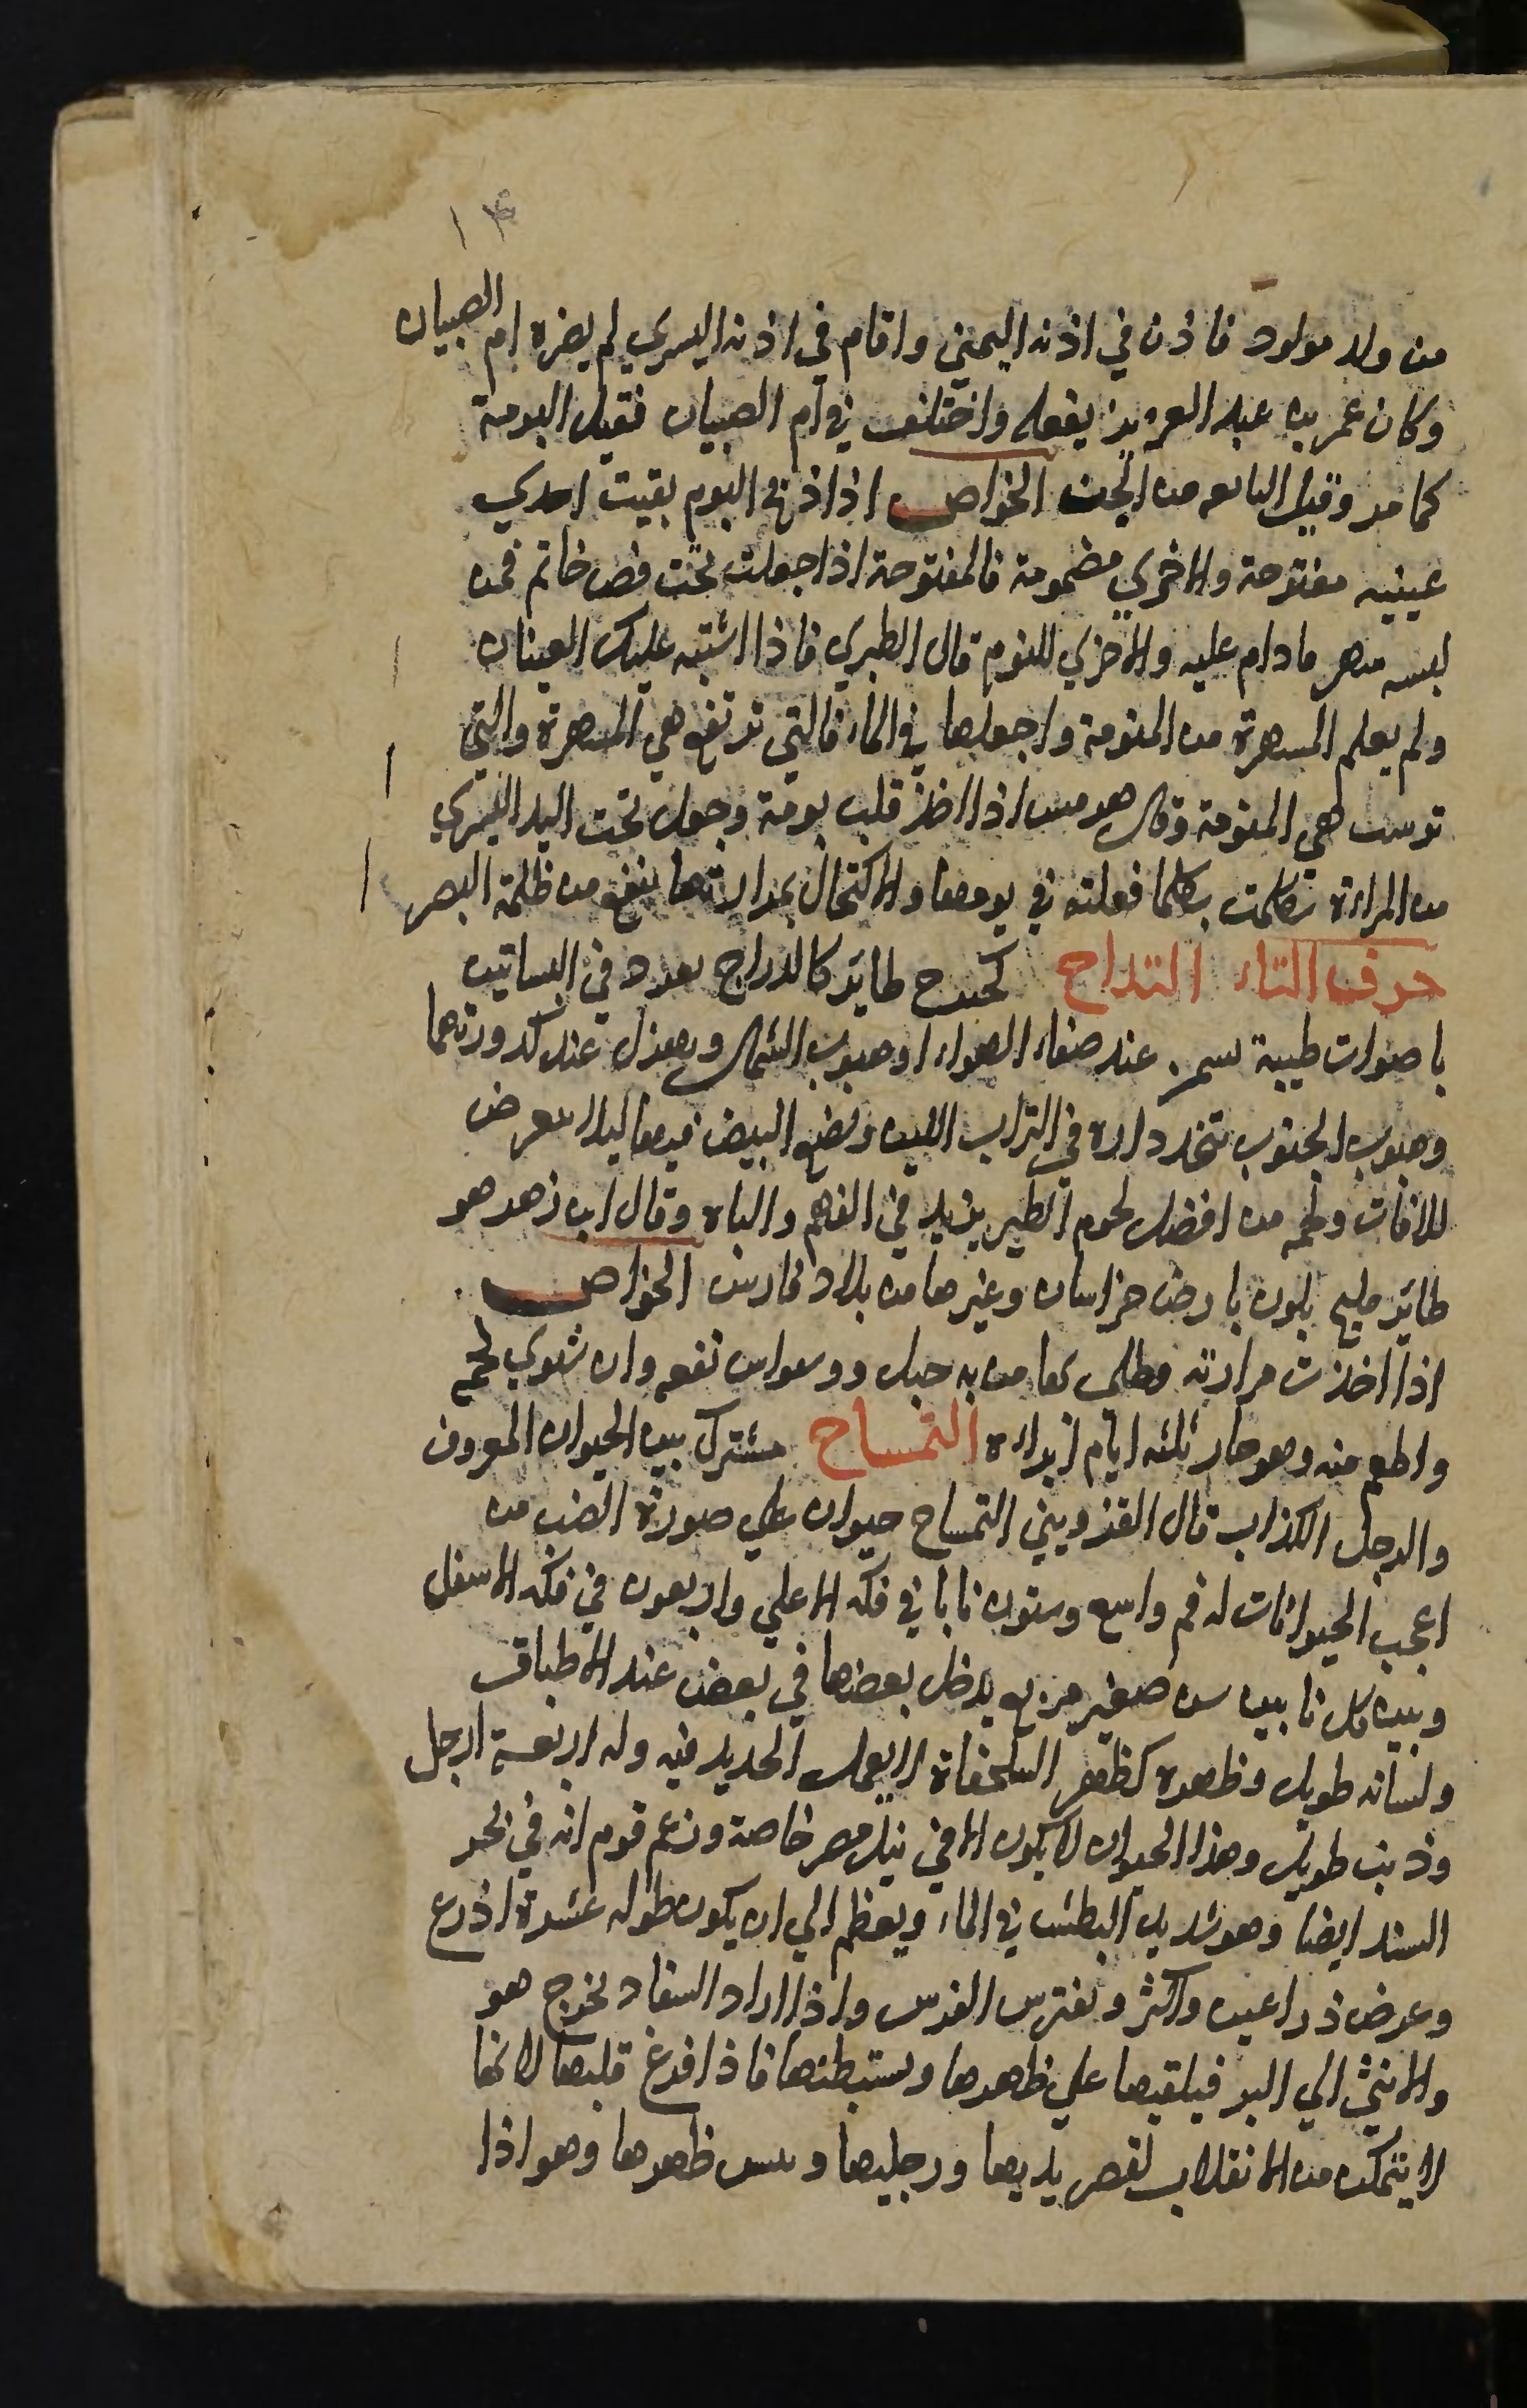 ١٤
من ولد مولود فاذن في اذنه اليمني واقام في اذنه اليسري لم يضره ام الصبيان
وكان عمر بن عبد العزيز يفعله واختلف في ام الصبيان فقيل البومة
كما مر وقيل التابعه من الجن الخواص اذا ذبح البوم بقيت احدي
عينيه مفتوحة والاخري مضمومة فالمفتوحة اذا جعلت تحت فص خاتم فمن
لبسه سهر مادام عليه والاخري للنوم قال الطبري فاذا اشتبه عليك العينان
ولم يعلم المسهرة من المنومة واجعلها في الماء فالتي ترتفع هي المسهرة والتي
ترسب هي المنومة وقال هرمس اذا اخذ قلب بومة وجعل تحت اليد اليسري
من المراءة تكلمت بكلما فعلته في يومها والاكتحال بمرارتها ينفع من ظلمة البصر
حرف التاء التداح كحدح طاير كالدراج يغرد في البساتين
باصوات طيبة يسمن عند صفاء الهواء او هبوب الشمال ويهزل عند كدورتهما
وهبوب الجنوب يتخذ داره في التراب اللين ويضع البيض فيها ليلا يتعرض
للافات ولحمه من افضل لحوم الطير يزيد في الفهم والباه وقال ابن زهر هو
طاير مليح يكون بارض خراسان وغيرها من بلاد فارس الخواص
اذا اخذت مرارته وطلي بها من به خبل ووسواس نفعه وان شوي لحمه
واطعم منه وهو حار ثلثه ايام ابراءه التمساح مشترك بين الحيوان المعروف
والرجل الكذاب قال القزويني التمساح حيوان علي صورة الضب من
اعجب الحيوانات له فم واسع وستون نابا في فكه الاعلي واربعون في فكه الاسفل
وبين كل نابين سن صغير مربع يدخل بعضها في بعض عند الاطباق
ولسانه طويل وظهره كظهر السلحفاة لا يعمل الحديد فيه وله اربعة ارجل
وذنب طويل وهذا الحيوان لا يكون الا في نيل مصر خاصة وزعم قوم انه في بحر
السند ايضا وهو شديد البطش في الماء ويعظم الي ان يكون طوله عشرة اذرع
وعرض ذراعين واكثر ويفترس الفرس واذا اراد السفاد يخرج هو
والانثي الي البر فيلقيها علي ظهرها ويستبطنها فاذا فرغ قلبها لانها
لا يتمكن من الانقلاب لقصر يديها ورجليها ويبس ظهرها وهو اذا